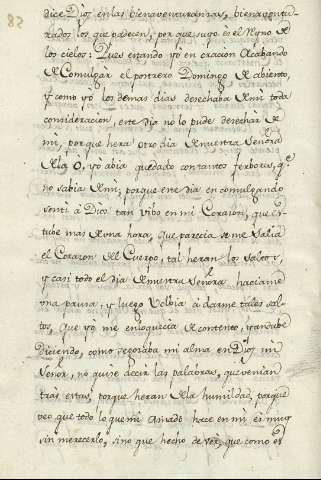 83
dice Dios en las bienaventuranzas, bienaventu-
rados los que padecen, por que suyo es el Reyno de
los cielos: Pues estando yo en oracion Acabando
de Comulgar el postrero Domingo de abiento,
y como yo los demas dias desechaba de mi toda
consideracion, este dia no lo pude desechar de
mi, porque hera otro dia de nuestra Señora
de la O, yo abia quedado con tantos ferbores, qe
no sabia de mi; porque ese dia en comulgando
senti à Dios tan vibo en mi Corazon, que es-
tube mas de una hora, que parecia se me Salia
el Corazon del Cuerpo, tal heran los saltos,
y casi todo el dia de nuestra Señora haciame
una pausa, y luego Volbia à darme tales sal-
tos, que yo me enloquecia de contento, y andube
diciendo, como reposaba mi alma en Dios mi
Señor, no quise decir las palabras, que venian
tras estas, porque heran de la humildad, porque
veo que todo lo que mi Amado hace en mi es muy
sin merecerlo, sino que hecho de ver, que como es